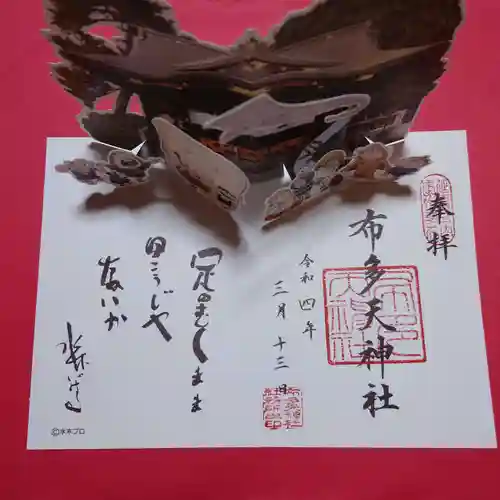 奉拝
布多天神社
令和四年
三月十三日
足のむくまま
甲こうじや
ないか
水木しげる
©水木プロ